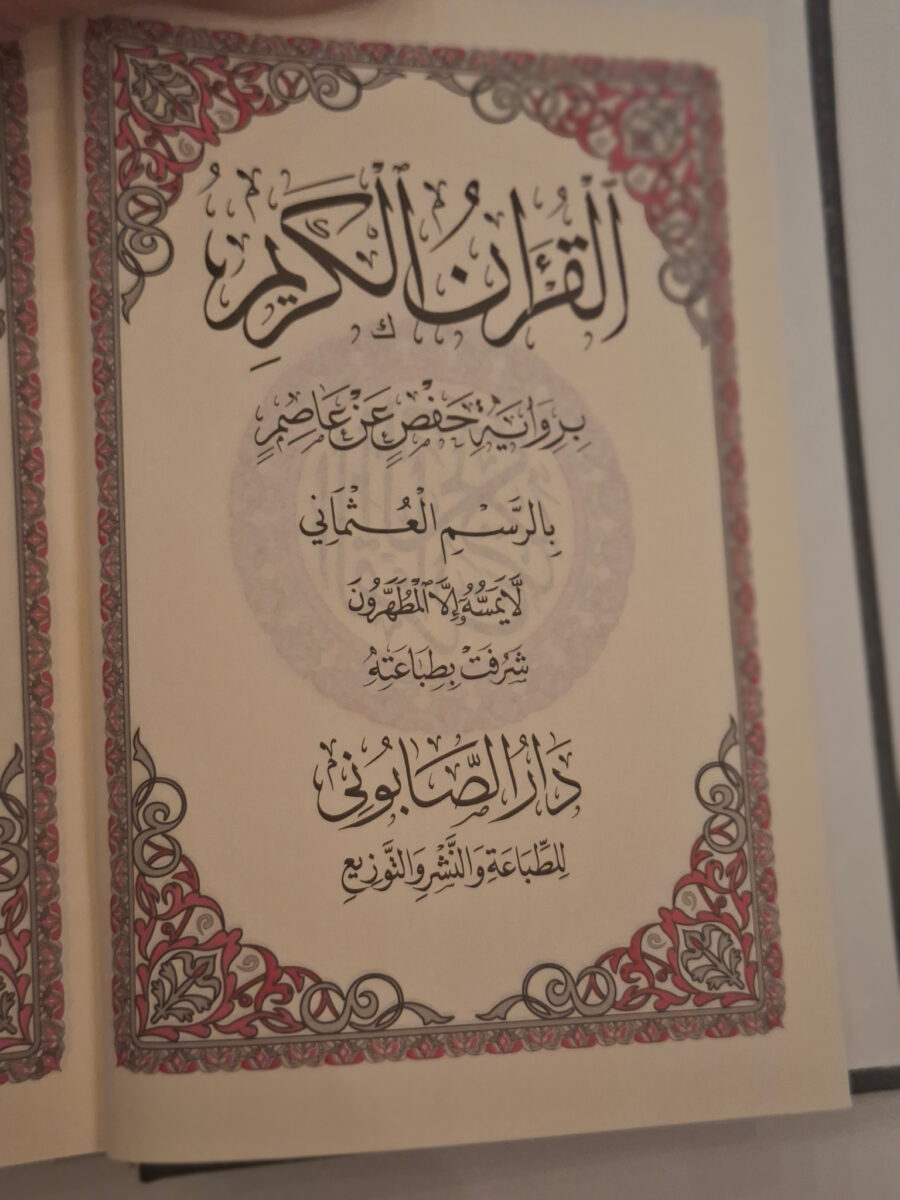 ٱلْقُرْءَانُ ٱلْكَرِيمُ
بِرِوَايَةِ حَفْصٍ عَنْ عَاصِمٍ
بِالرَّسْمِ الْعُثْمَانِي
لَّا يَمَسُّهُۥٓ إِلَّا ٱلْمُطَهَّرُونَ
شَرُفَتْ بِطِبَاعَتِهِ
دَارُ الصَّابُونِي
لِلطِّبَاعَةِ وَالنَّشْرِ وَالتَّوْزِيعِ